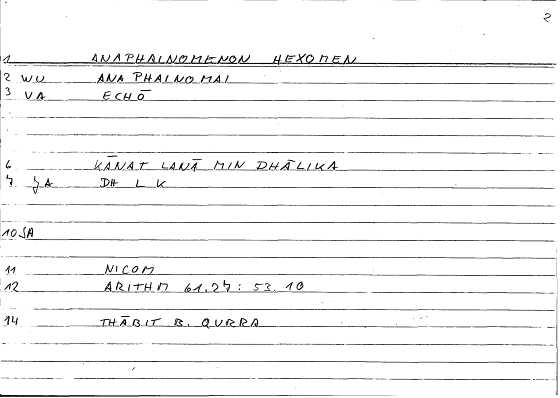 2
1 ANAPHALNOMENON HEXOMEN
2 WU ANAPHALNOMAI
3 VA ECHŌ
6 KĀNAT LANĀ MIN DHĀLIKA
7 JA DH L K
10 SA
11 NICOM
12 ARITHM 61.27: 53.10
14 THĀBIT B. QURRA